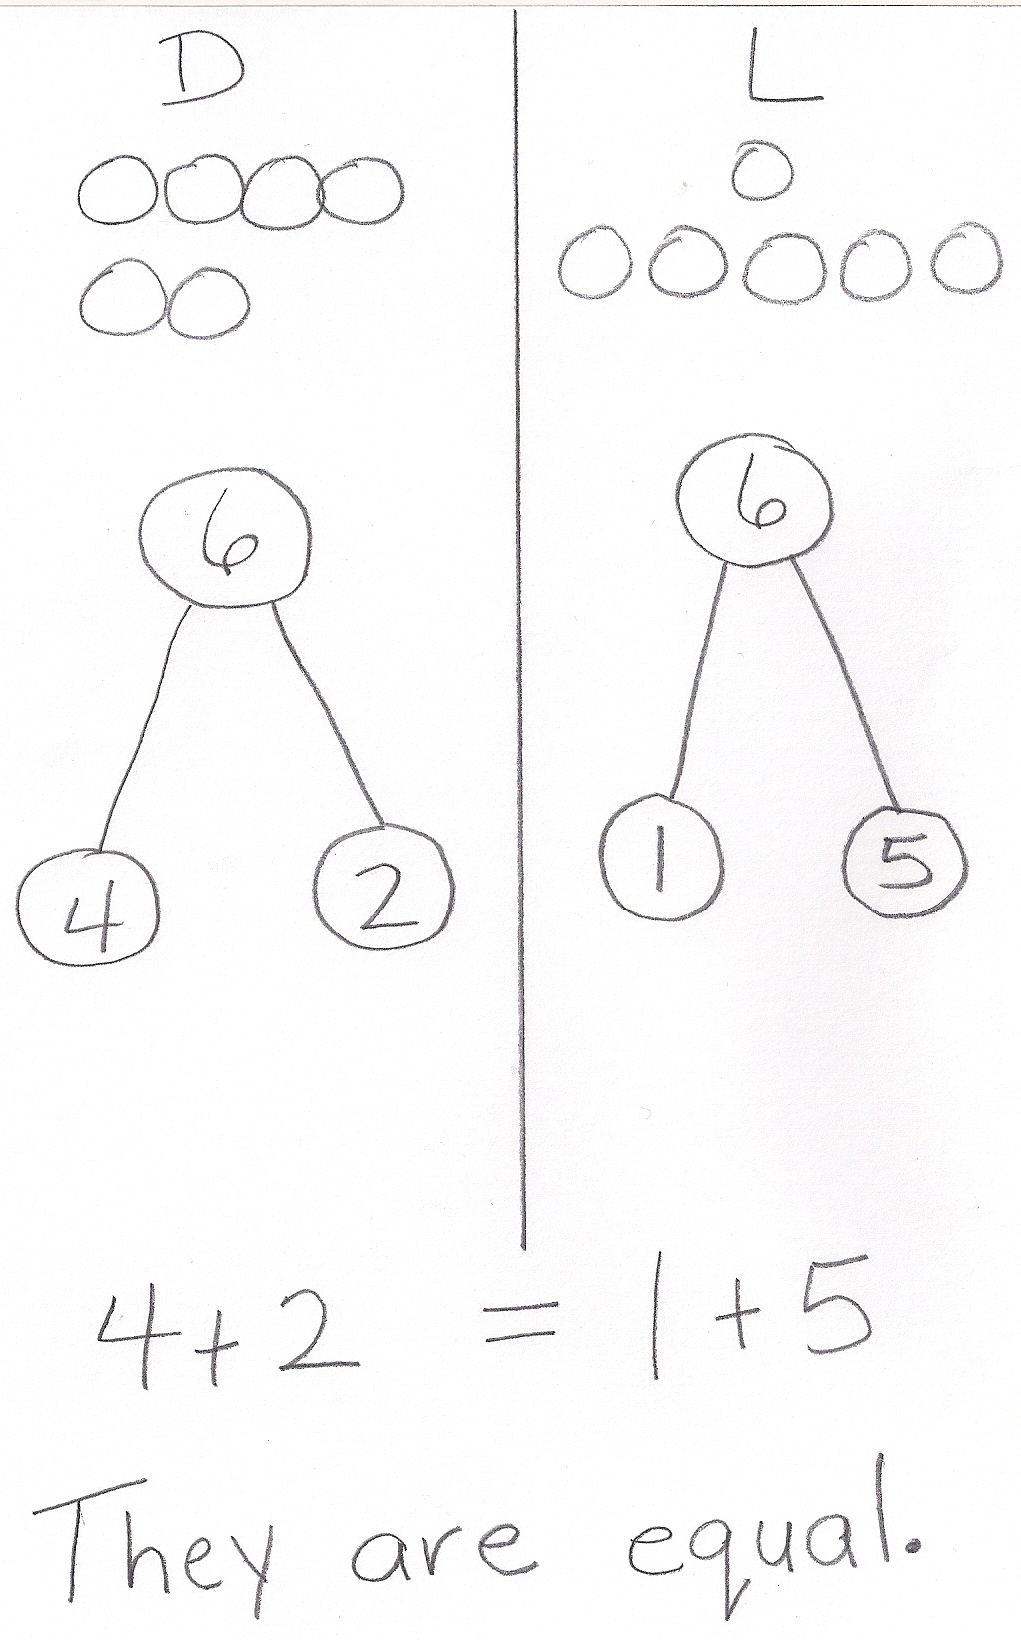 D L
6 6
4 2 1 5
4+2 = 1+5
They are equal.